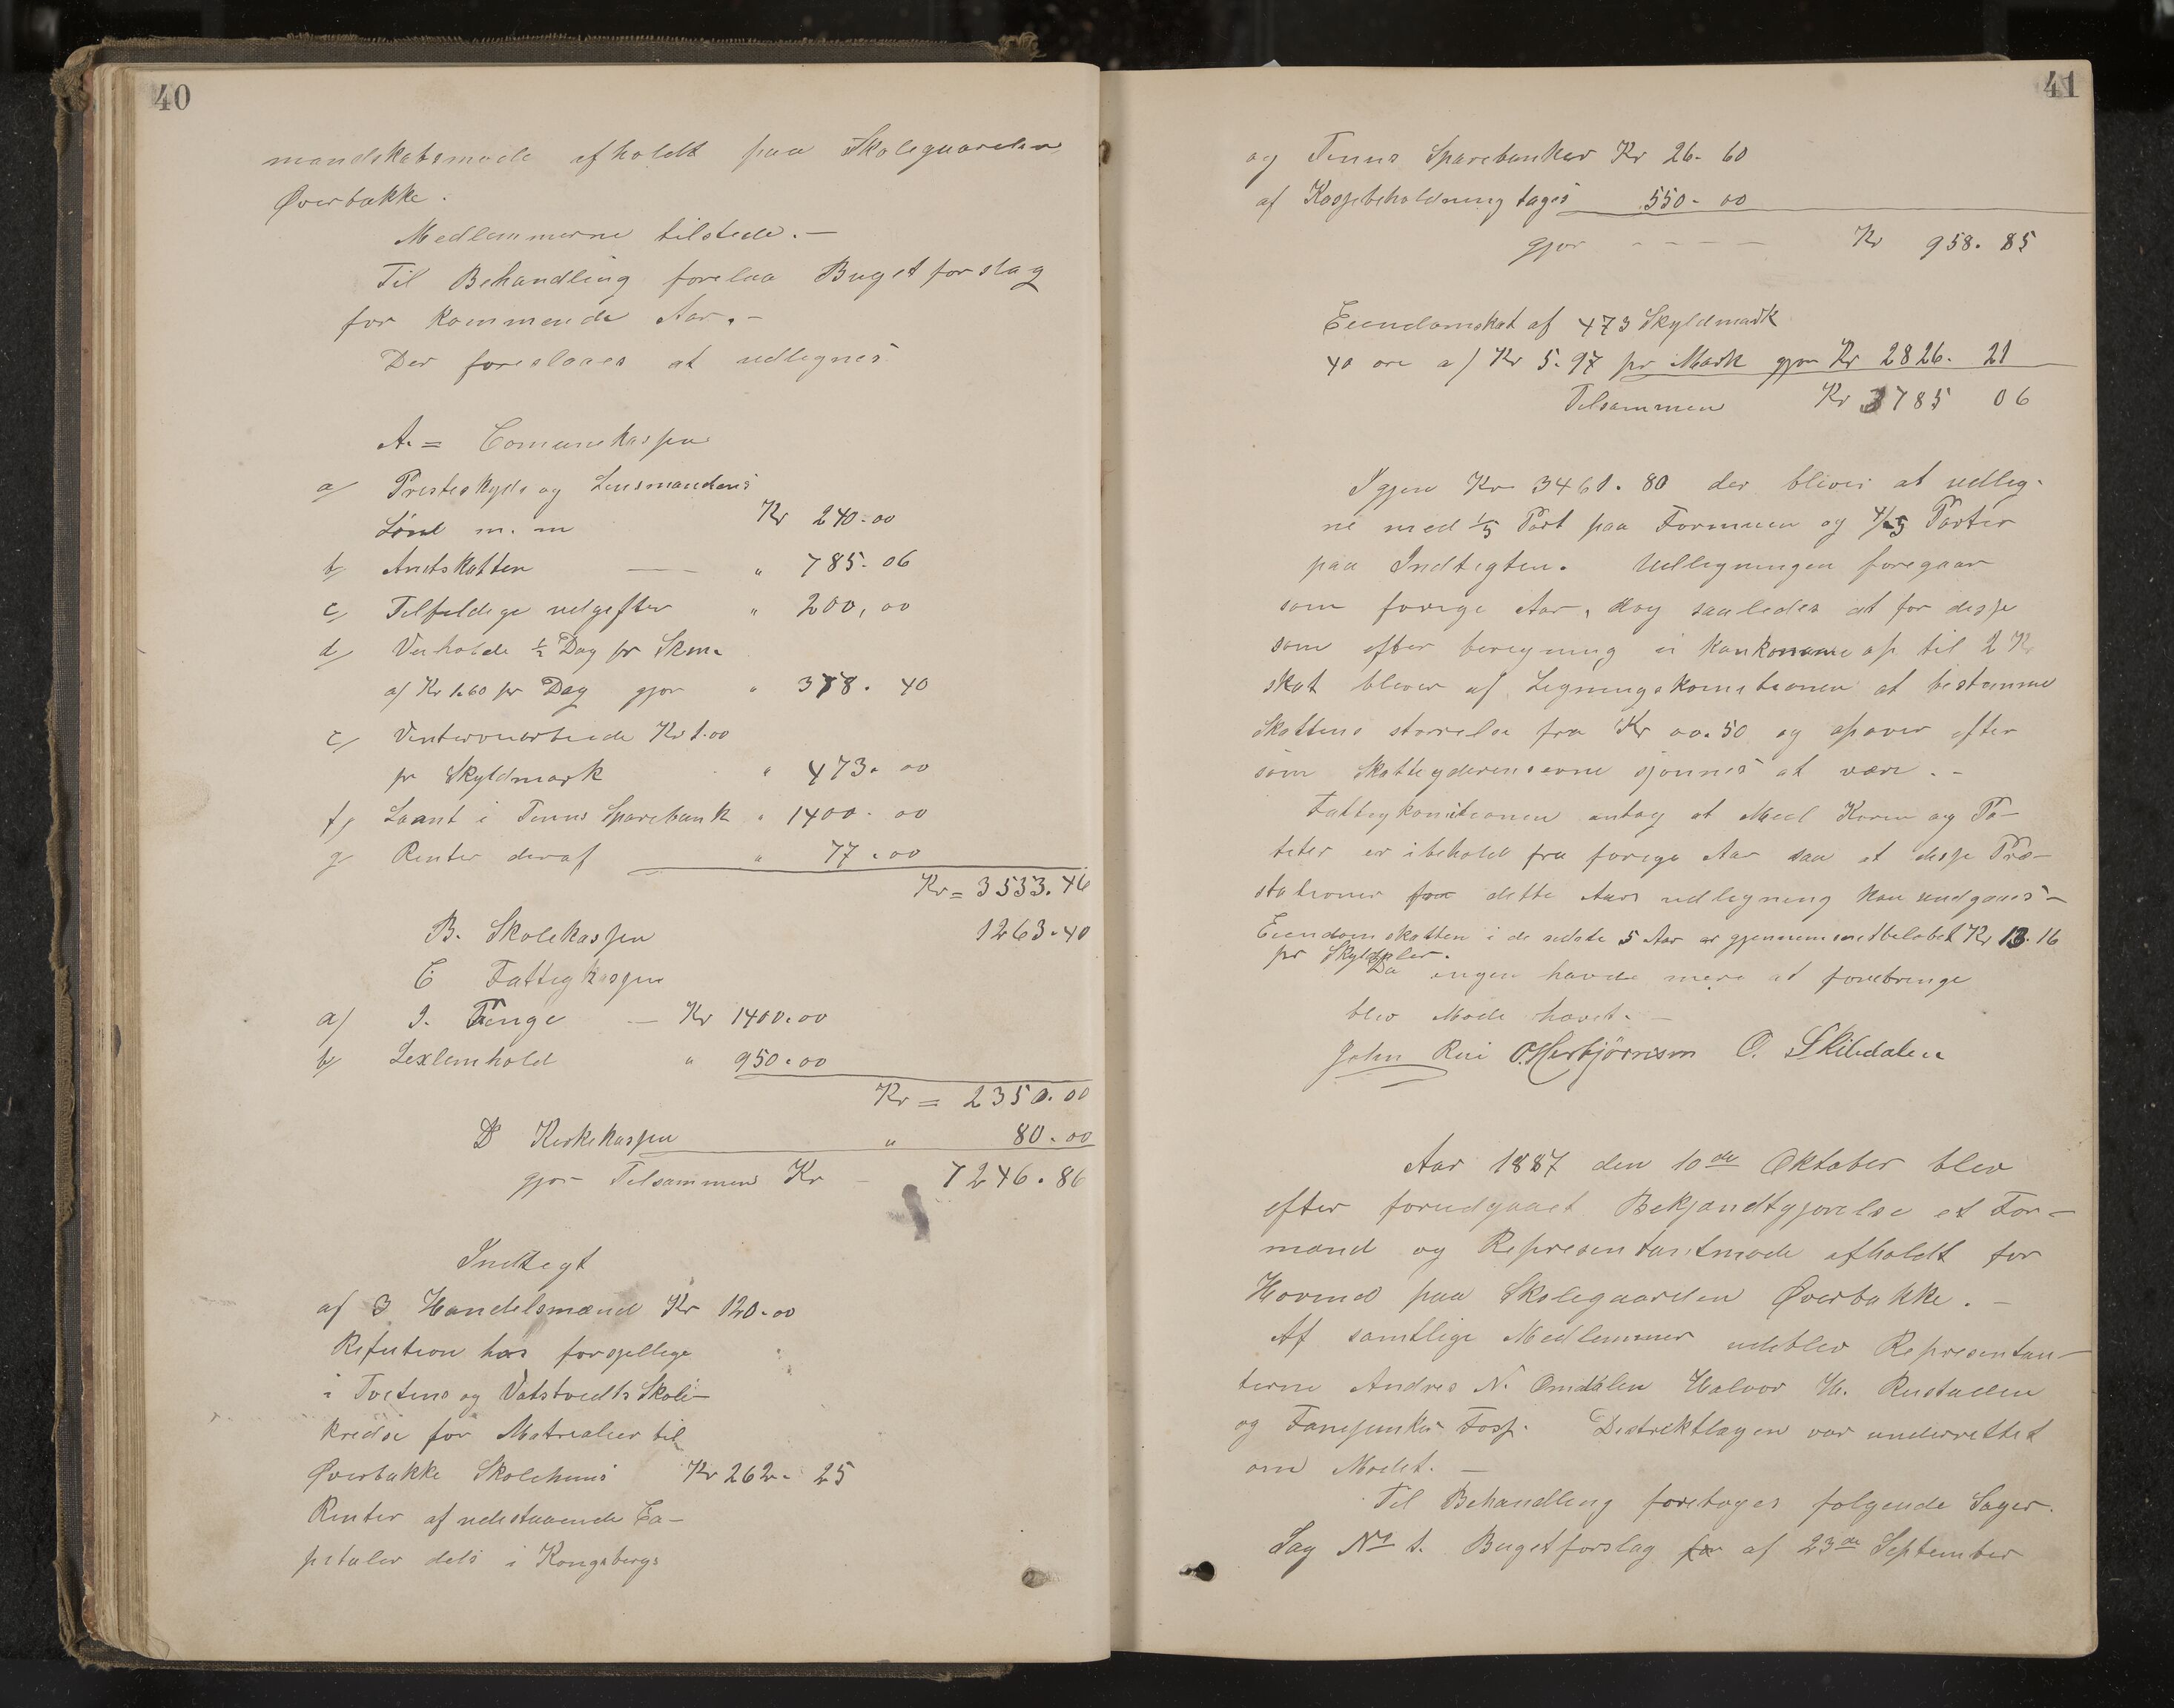 40
mandskabsmøde afholdt paa Skolegaarden
Øverbøkke.
Medlemmerne tilstede. —
Til Behandling forelaa Bugetforslag
for kommende Aar. —
Der foreslaaes at udlignes
A. = Comunekassen
a) Presteskyds og Lensmandens
Lønd m. m Kr 240.00
b) Amtskatten — — " 785.06
c) Tilfeldige udgifter " 200,00
d) Veiholde ½ Dag pr Skm.
af Kr 1.60 pr Dag gjør " 378.40
e) Vinterveiarbeide Kr 1.00
pr Skyldmark " 473.00
f) Laant i Tinns Sparebank " 1400.00
g) Renter deraf " 77.00
Kr = 3533.46
B. Skolekassen 1263.40
C Fattigkassen
a) I. Penge — Kr 1400.00
b) Lexlemhold " 950.00
Kr = 2350.00
D Kirkekassen " 80.00
gjør Tilsammens Kr — 7246.86
Indtegt
af 3 Handelsmænd Kr 120.00
Refution hos forsjellige
i Tvetens og Vatstvedts Skole-
kredse for Matrealier til
Øverbøkke Skolehuus Kr 262. 25
Renter af udestaaende Ca-
pitaler dels i Kongsbergs
41
og Tinns Sparebanker Kr 26. 60
af Kassebeholdning tages 550. 00
gjør - - - - Kr 958. 85
Eiendomskat af 473 Skyldmark
40 øre af Kr 5.97 pr Mark gjør Kr 2826. 21
Tilsammen Kr 3785 06
Igjen Kr 3461.80 der bliver at udlig-
ne med 1/5 Part paa Formuen og 4/5 Parter
paa Indtegten. Udligningen foregaar
som forige Aar, dog saaledes at for disse
som efter beregning ei kan komme op til 2 Kr
skat bliver af Ligningskomitionen at bestemme
Skattens størrelse fra Kr 00.50 og opover efter
som Skatteyderens evne sjønnes at være. —
Fattigkomitionen antog at Med Koren og Po-
teter er i behold fra forige Aar saa at disse Præ-
stationer fra dette Aars udligning kan undgaaes —
Eiendomskatten i de sidste 5 Aar er gjennemsnetbeløbet Kr 13.16
pr Skylddaler.
Da ingen havde mere at forebringe
blev Møde hævet. —
John Rui O. Herbjørnsen O. Skibdalen
Aar 1887 den 10de Oktober blev
efter forudgaaet Bekjandtgjørelse et For-
mand og Representantmøde afholdt for
Hovind paa Skolegaarden Øverbøkke. —
Af samtlige Medlemmer udeblev Representan-
terne Andres N. Omdalen Halvor H. Rustaden
og Fanejunker Foss. Distriktlægen var underrettet
om Mødet. —
Til Behandling foretoges følgende Sager.
Sag No 1. Bugetforslag for af 23de September